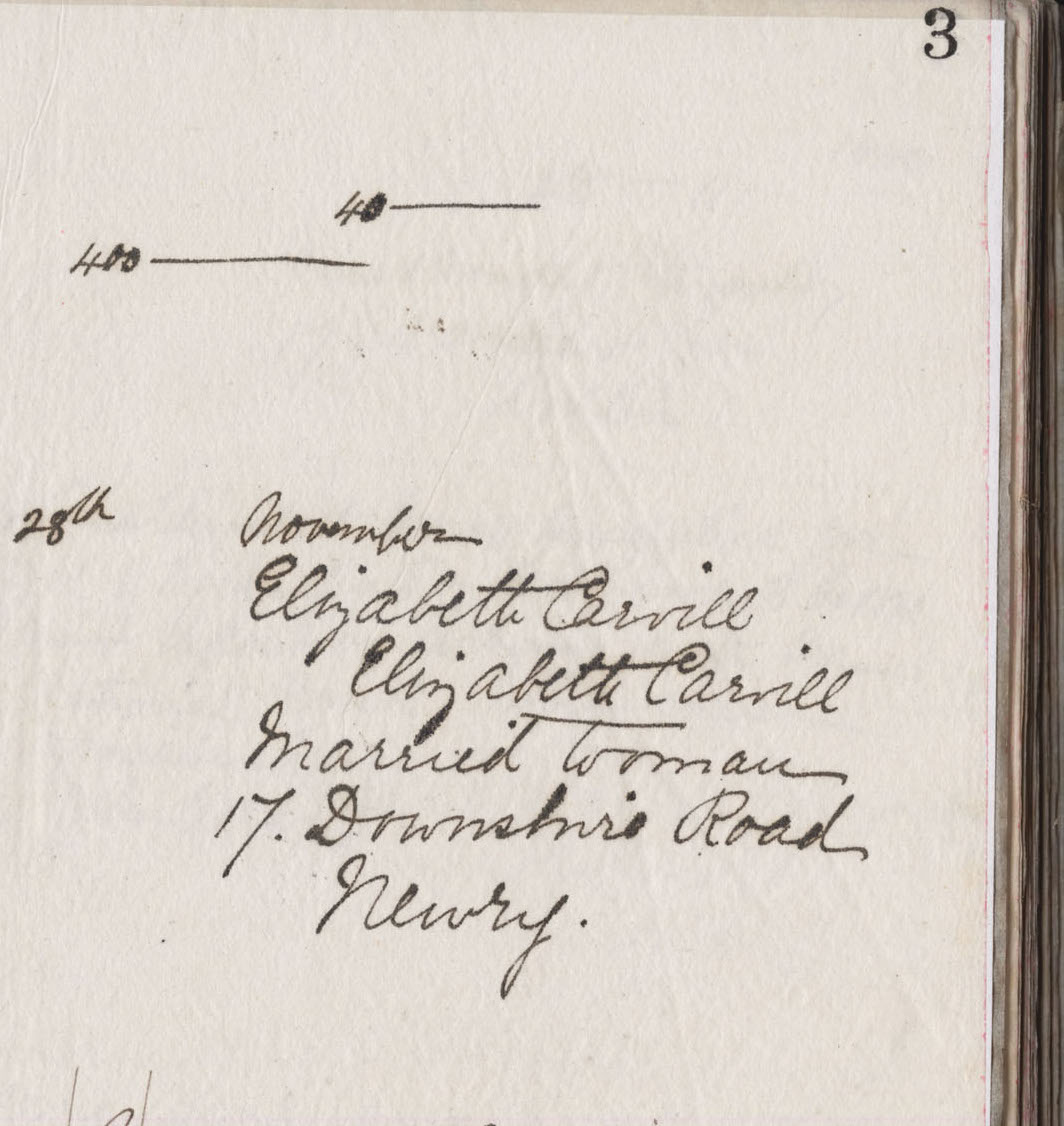 3
40
400
28th November
Elizabeth Carvill
Elizabeth Carvill
Married Woman
17. Downshire Road
Newry.